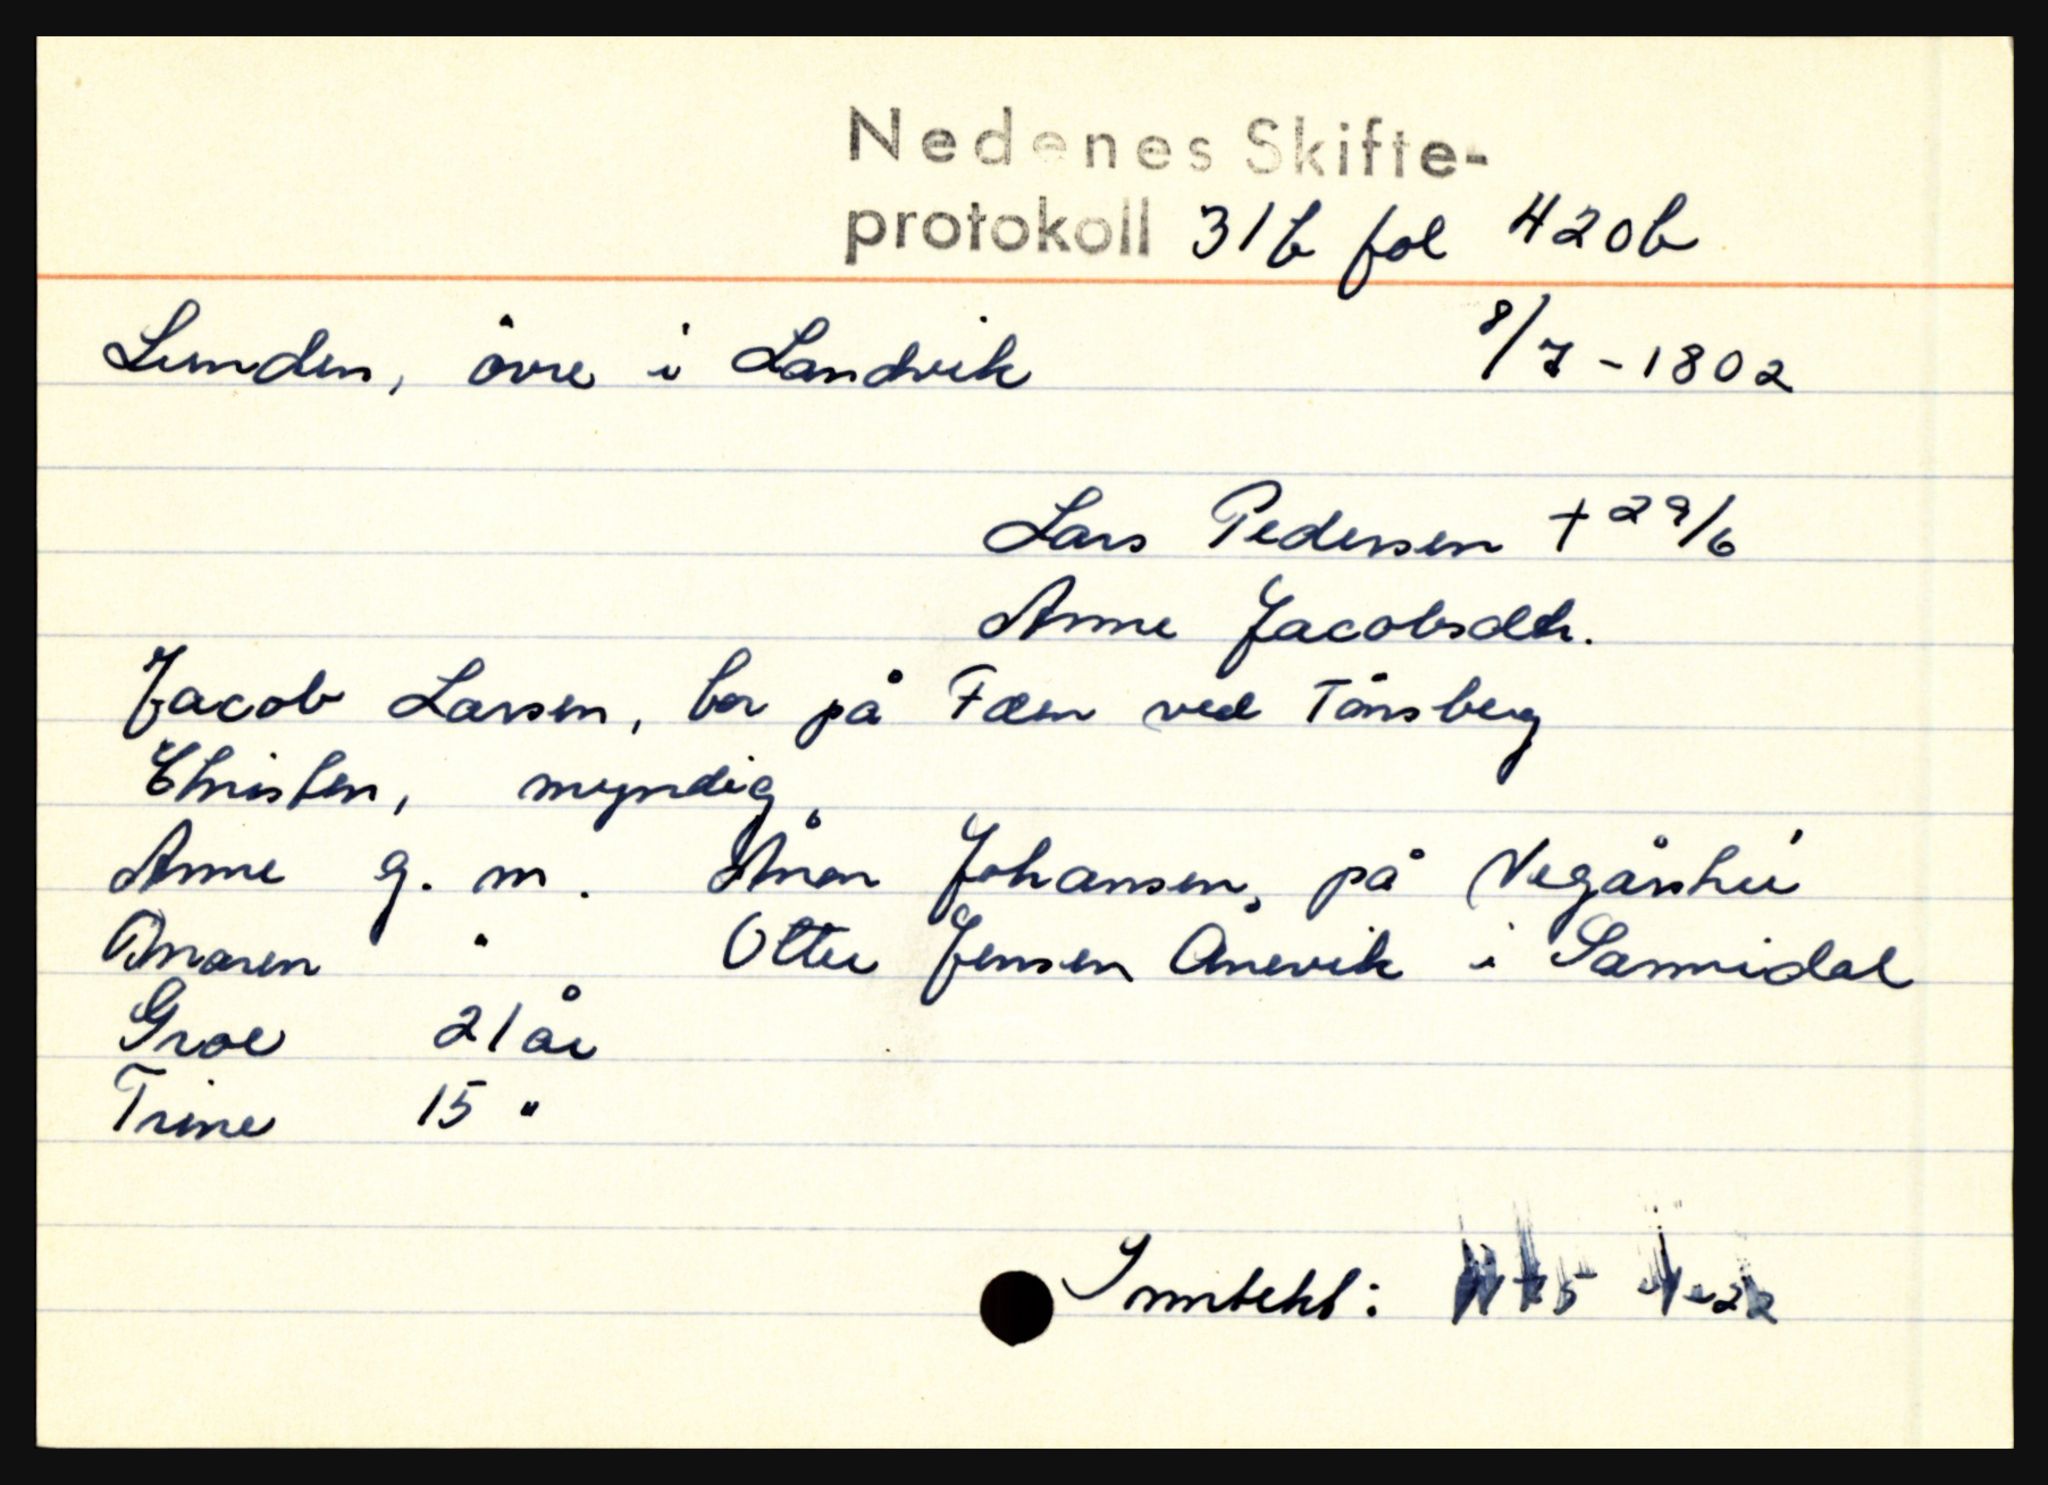 Nedenes Skifte-
protokoll 31b fol 420b
Lunden, övre i Landvik 8/7-1802
Lars Pedersen + 29/6
Anne Jacobsdtr.
Jacob Larsen, bor på Føen ved Tönsberg
Christen, myndig
Anne g. m. Ånon Johansen, på Vegårshei
Maren " Otter Jensen Ånevik i Sannidal
Groe 21 år
Trine 15 "
Inntekt: